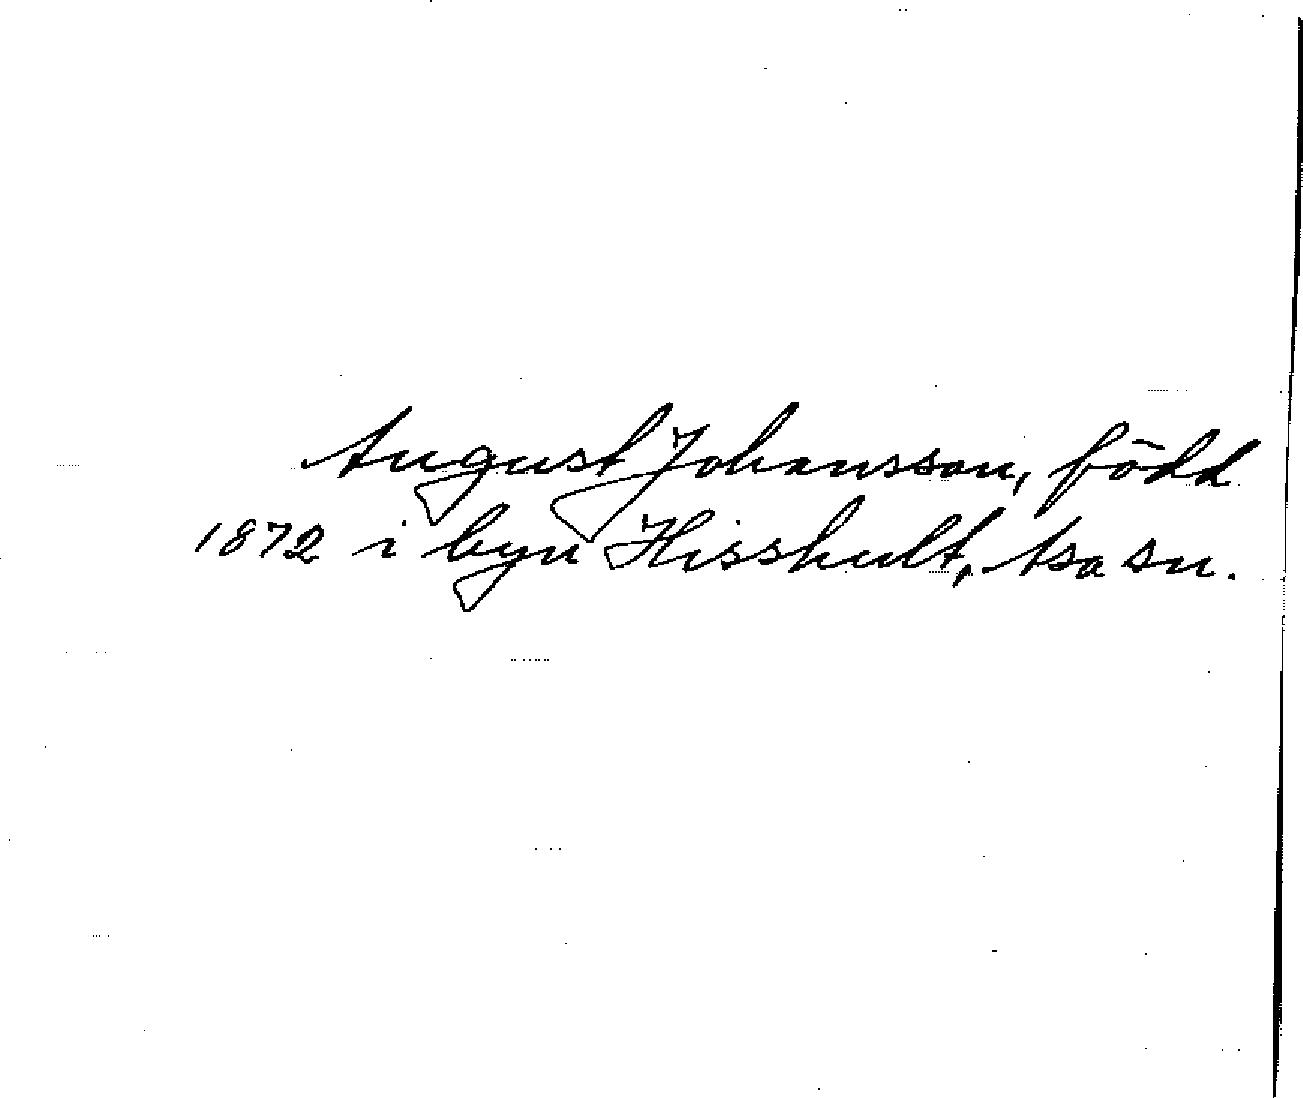 August Johansson, född
1872 i byn Hisshult, tsa sn.